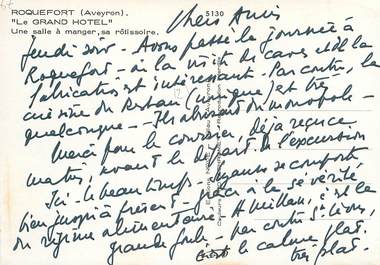 ROQUEFORT (Aveyron).
"Le GRAND HOTEL"
Une salle à manger, sa rôtissoire.
5130
Chers Amis
Jeudi soir - Avons passé la journée à
Roquefort - à la visite de caves et de la
fabrication et intéressant. Par contre, la
cuisine du Restau (unique) est très
quelconque - Ils abusent du monopole -
Merci pour le courrier, déjà reçu ce
matin, avant le départ de l'excursion
Ici - le beau temps - se comporte
bien jusqu'à présent - grâce à la sévérité
du régime alimentaire. A Millau, c'est la
grande foule - par contre St.
le calme plat.
très plat.